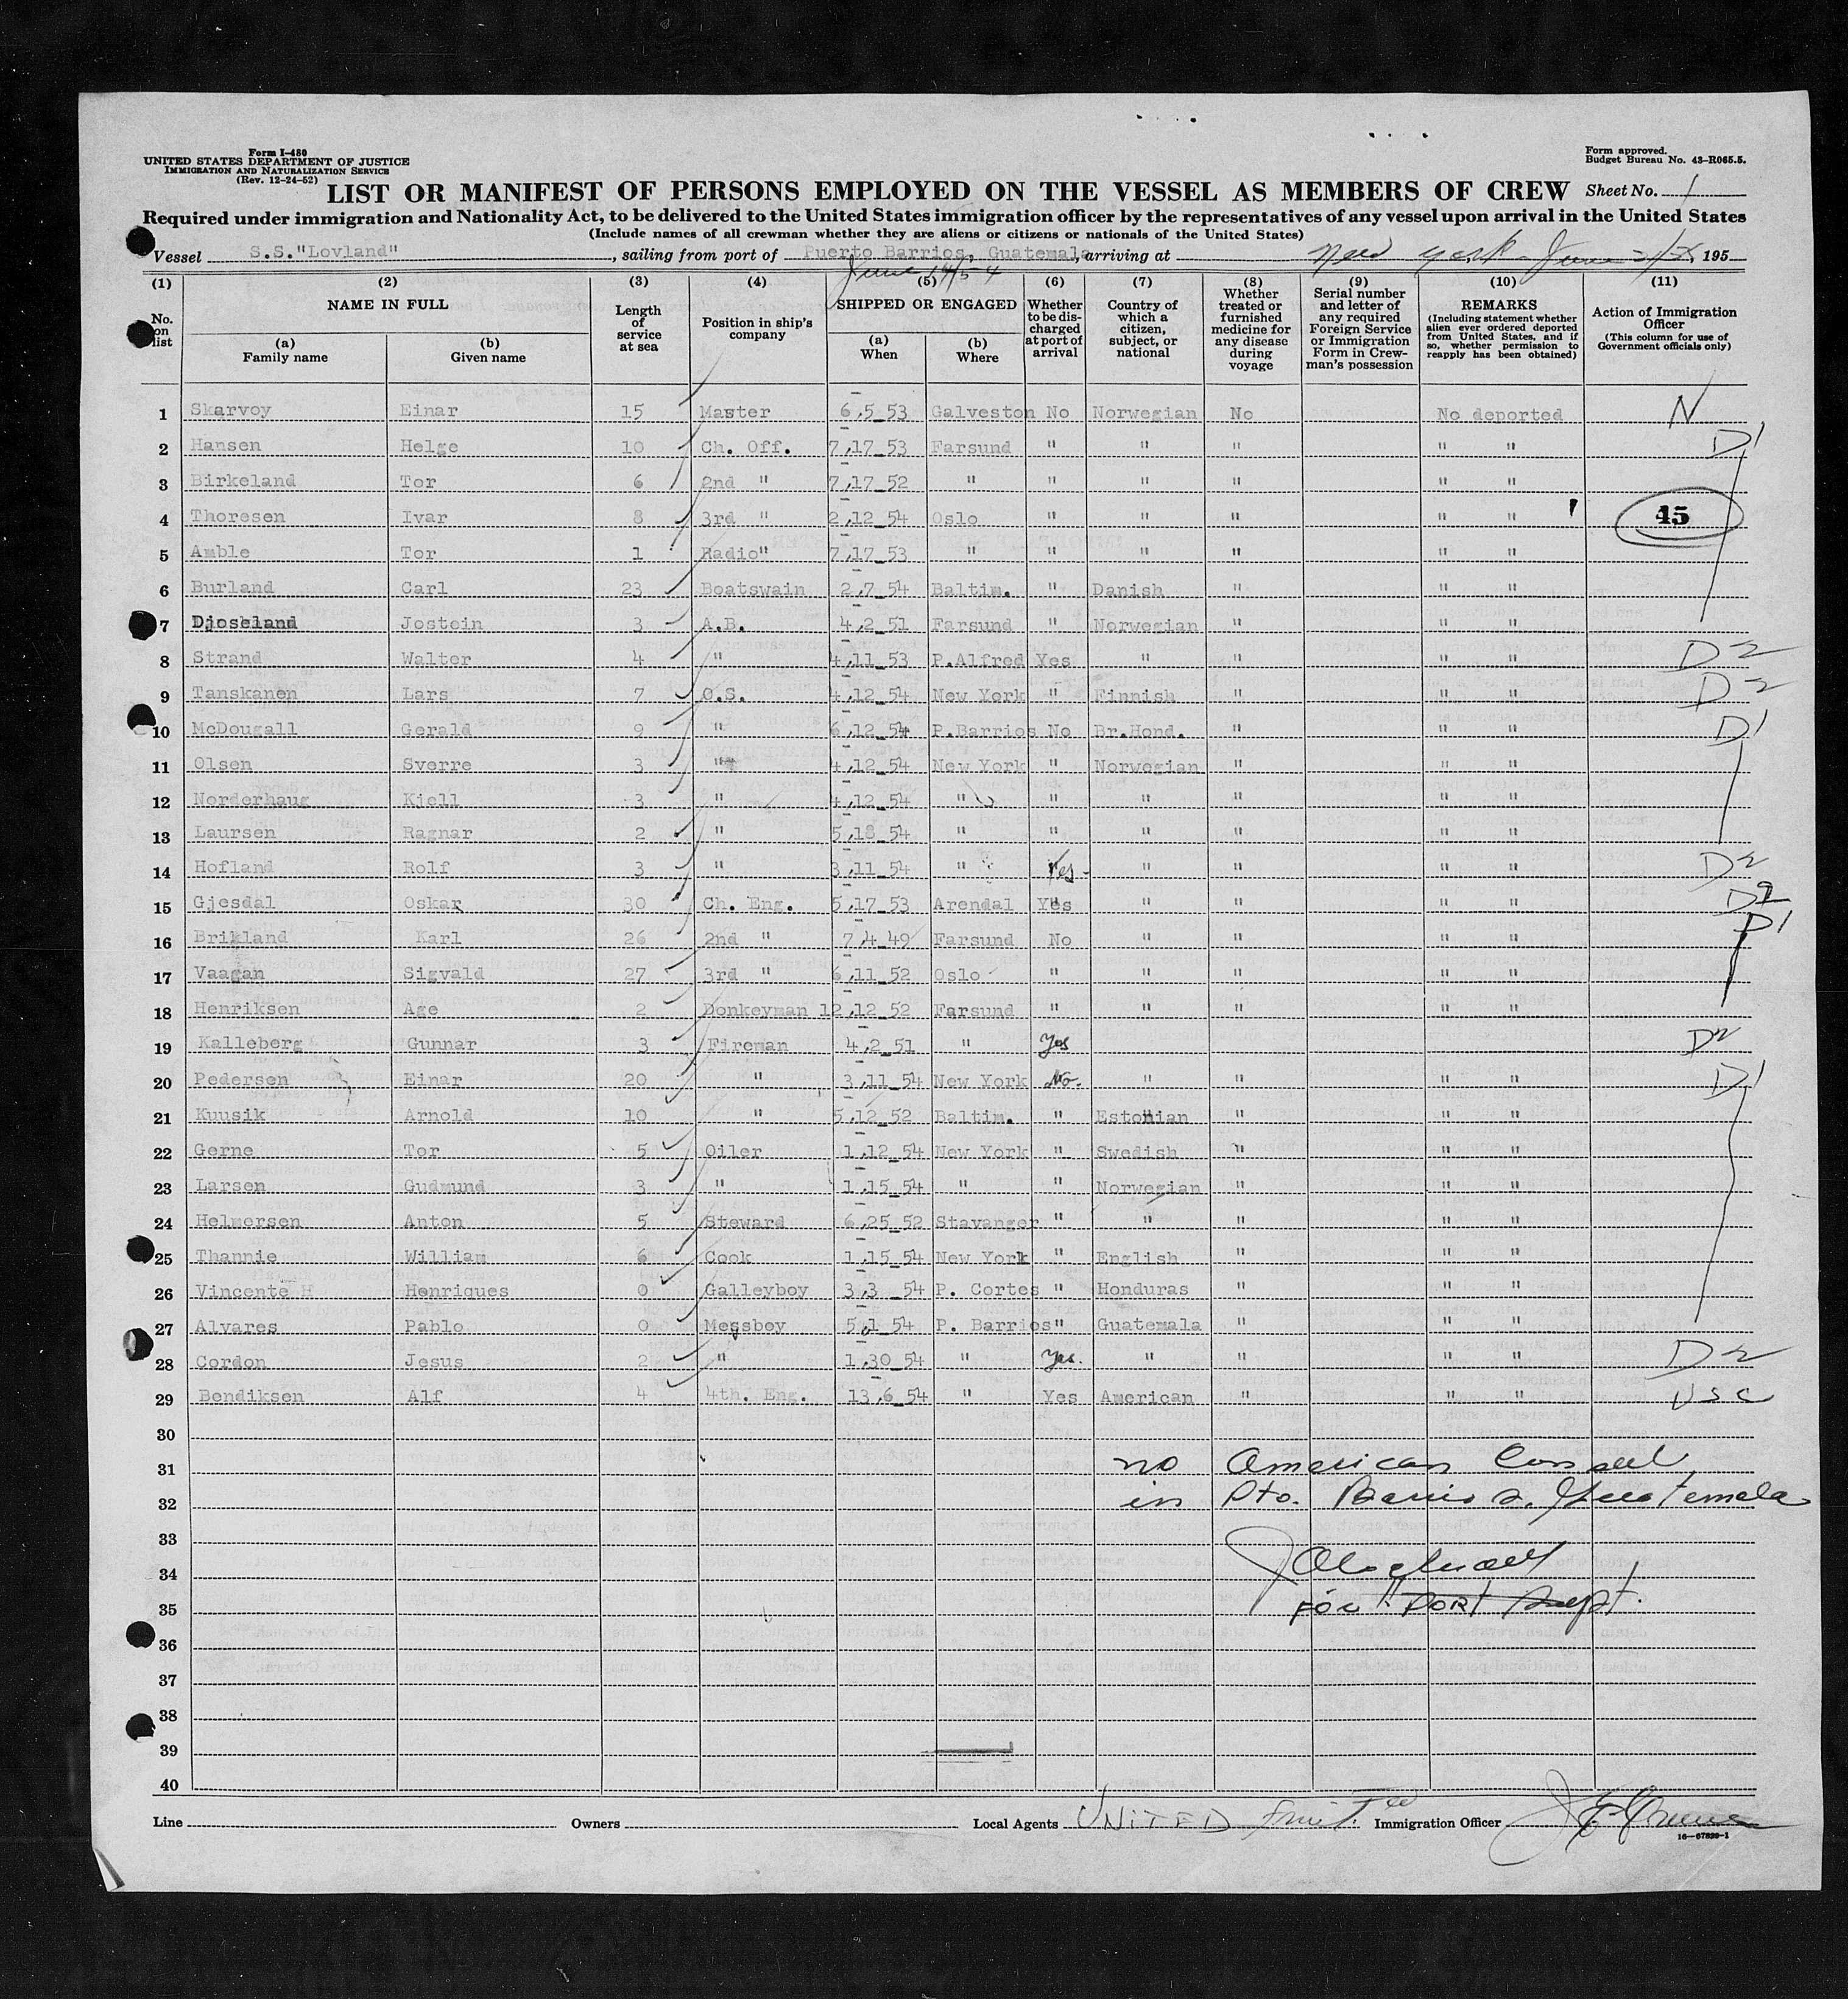 Form I-480
UNITED STATES DEPARTMENT OF JUSTICE
IMMIGRATION AND NATURALIZATION SERVICE
(Rev. 12-24-52)
Form approved.
Budget Bureau No. 43-R065.5.
LIST OR MANIFEST OF PERSONS EMPLOYED ON THE VESSEL AS MEMBERS OF CREW Sheet No. 1
Required under immigration and Nationality Act, to be delivered to the United States immigration officer by the representatives of any vessel upon arrival in the United States
(Include names of all crewman whether they are aliens or citizens or nationals of the United States)
Vessel S.S."Lovland", sailing from port of Puerto Barrios, Guatemala, arriving at New York June 195
June 14/54
(1) No. on list
(2) NAME IN FULL
(a) Family name
(b) Given name
(3) Length of service at sea
(4) Position in ship's company
(5) SHIPPED OR ENGAGED
(a) When
(b) Where
(6) Whether to be discharged at port of arrival
(7) Country of which a citizen, subject, or national
(8) Whether treated or furnished medicine for any disease during voyage
(9) Serial number and letter of any required Foreign Service or Immigration Form in Crewman's possession
(10) REMARKS (Including statement whether alien ever ordered deported from United States, and if so, whether permission to reapply has been obtained)
(11) Action of Immigration Officer (This column for use of Government officials only)
1 Skarvoy Einar 15 Master 6,5_53 Galveston No Norwegian No No deported N
2 Hansen Helge 10 Ch. Off. 7,17_53 Farsund " " " " " D1
3 Birkeland Tor 6 2nd " 7,17_52 " " " " " "
4 Thoresen Ivar 8 3rd " 2,12_54 Oslo " " " " " 45
5 Amble Tor 1 Radio" 7,17_53 " " " " " "
6 Burland Carl 23 Boatswain 2,7_54 Baltim. " Danish " " "
7 Djoseland Jostein 3 A.B. 4,2_51 Farsund " Norwegian " " "
8 Strand Walter 4 " 4,11_53 P.Alfred Yes " " " " D2
9 Tanskanen Lars 7 O.S. 4,12_54 New York " Finnish " " " D2
10 McDougall Gerald 9 " 6,12_54 P.Barrios No Br.Hond. " " " D1
11 Olsen Sverre 3 " 4,12_54 New York " Norwegian " " "
12 Norderhaug Kjell 3 " 4,12_54 " " " " " "
13 Laursen Ragnar 2 " 5,18_54 " " " " " "
14 Hofland Rolf 3 " 3,11_54 " Yes " " " " D2
15 Gjesdal Oskar 30 Ch. Eng. 5,17_53 Arendal Yes " " " " D2
16 Brikland Karl 26 2nd " 7,4_49 Farsund No " " " " D1
17 Vaagan Sigvald 27 3rd " 6,11_52 Oslo " " " " "
18 Henriksen Age 2 Donkeyman 12,12_52 Farsund " " " " "
19 Kalleberg Gunnar 3 Fireman 4,2_51 " Yes D2
20 Pedersen Einar 20 " 3,11_54 New York No. " " " " D1
21 Kuusik Arnold 10 " 5,12_52 Baltim. " Estonian " " "
22 Gerne Tor 5 Oiler 1,12_54 New York " Swedish " " "
23 Larsen Gudmund 3 " 1,15_54 " " Norwegian " " "
24 Helmersen Anton 5 Steward 6,25_52 Stavanger " " " " "
25 Thannie William 6 Cook 1,15_54 New York " English " " "
26 Vincente H Henriques 0 Galleyboy 3,3 _54 P. Cortes " Honduras " " "
27 Alvares Pablo 0 Messboy 5,1_54 P. Barrios" Guatemala " " "
28 Cordon Jesus 2 " 1,30_54 " Yes. " " " " D2
29 Bendiksen Alf 4 4th. Eng. 13,6_54 " Yes American " " " USC
30
31 no American Consul
32 in Pto. Barrios. Guatemala
33
34
35 For Port Supt.
36
37
38
39
40
Line Owners Local Agents UNITED Fruit Co Immigration Officer
16—67839-1